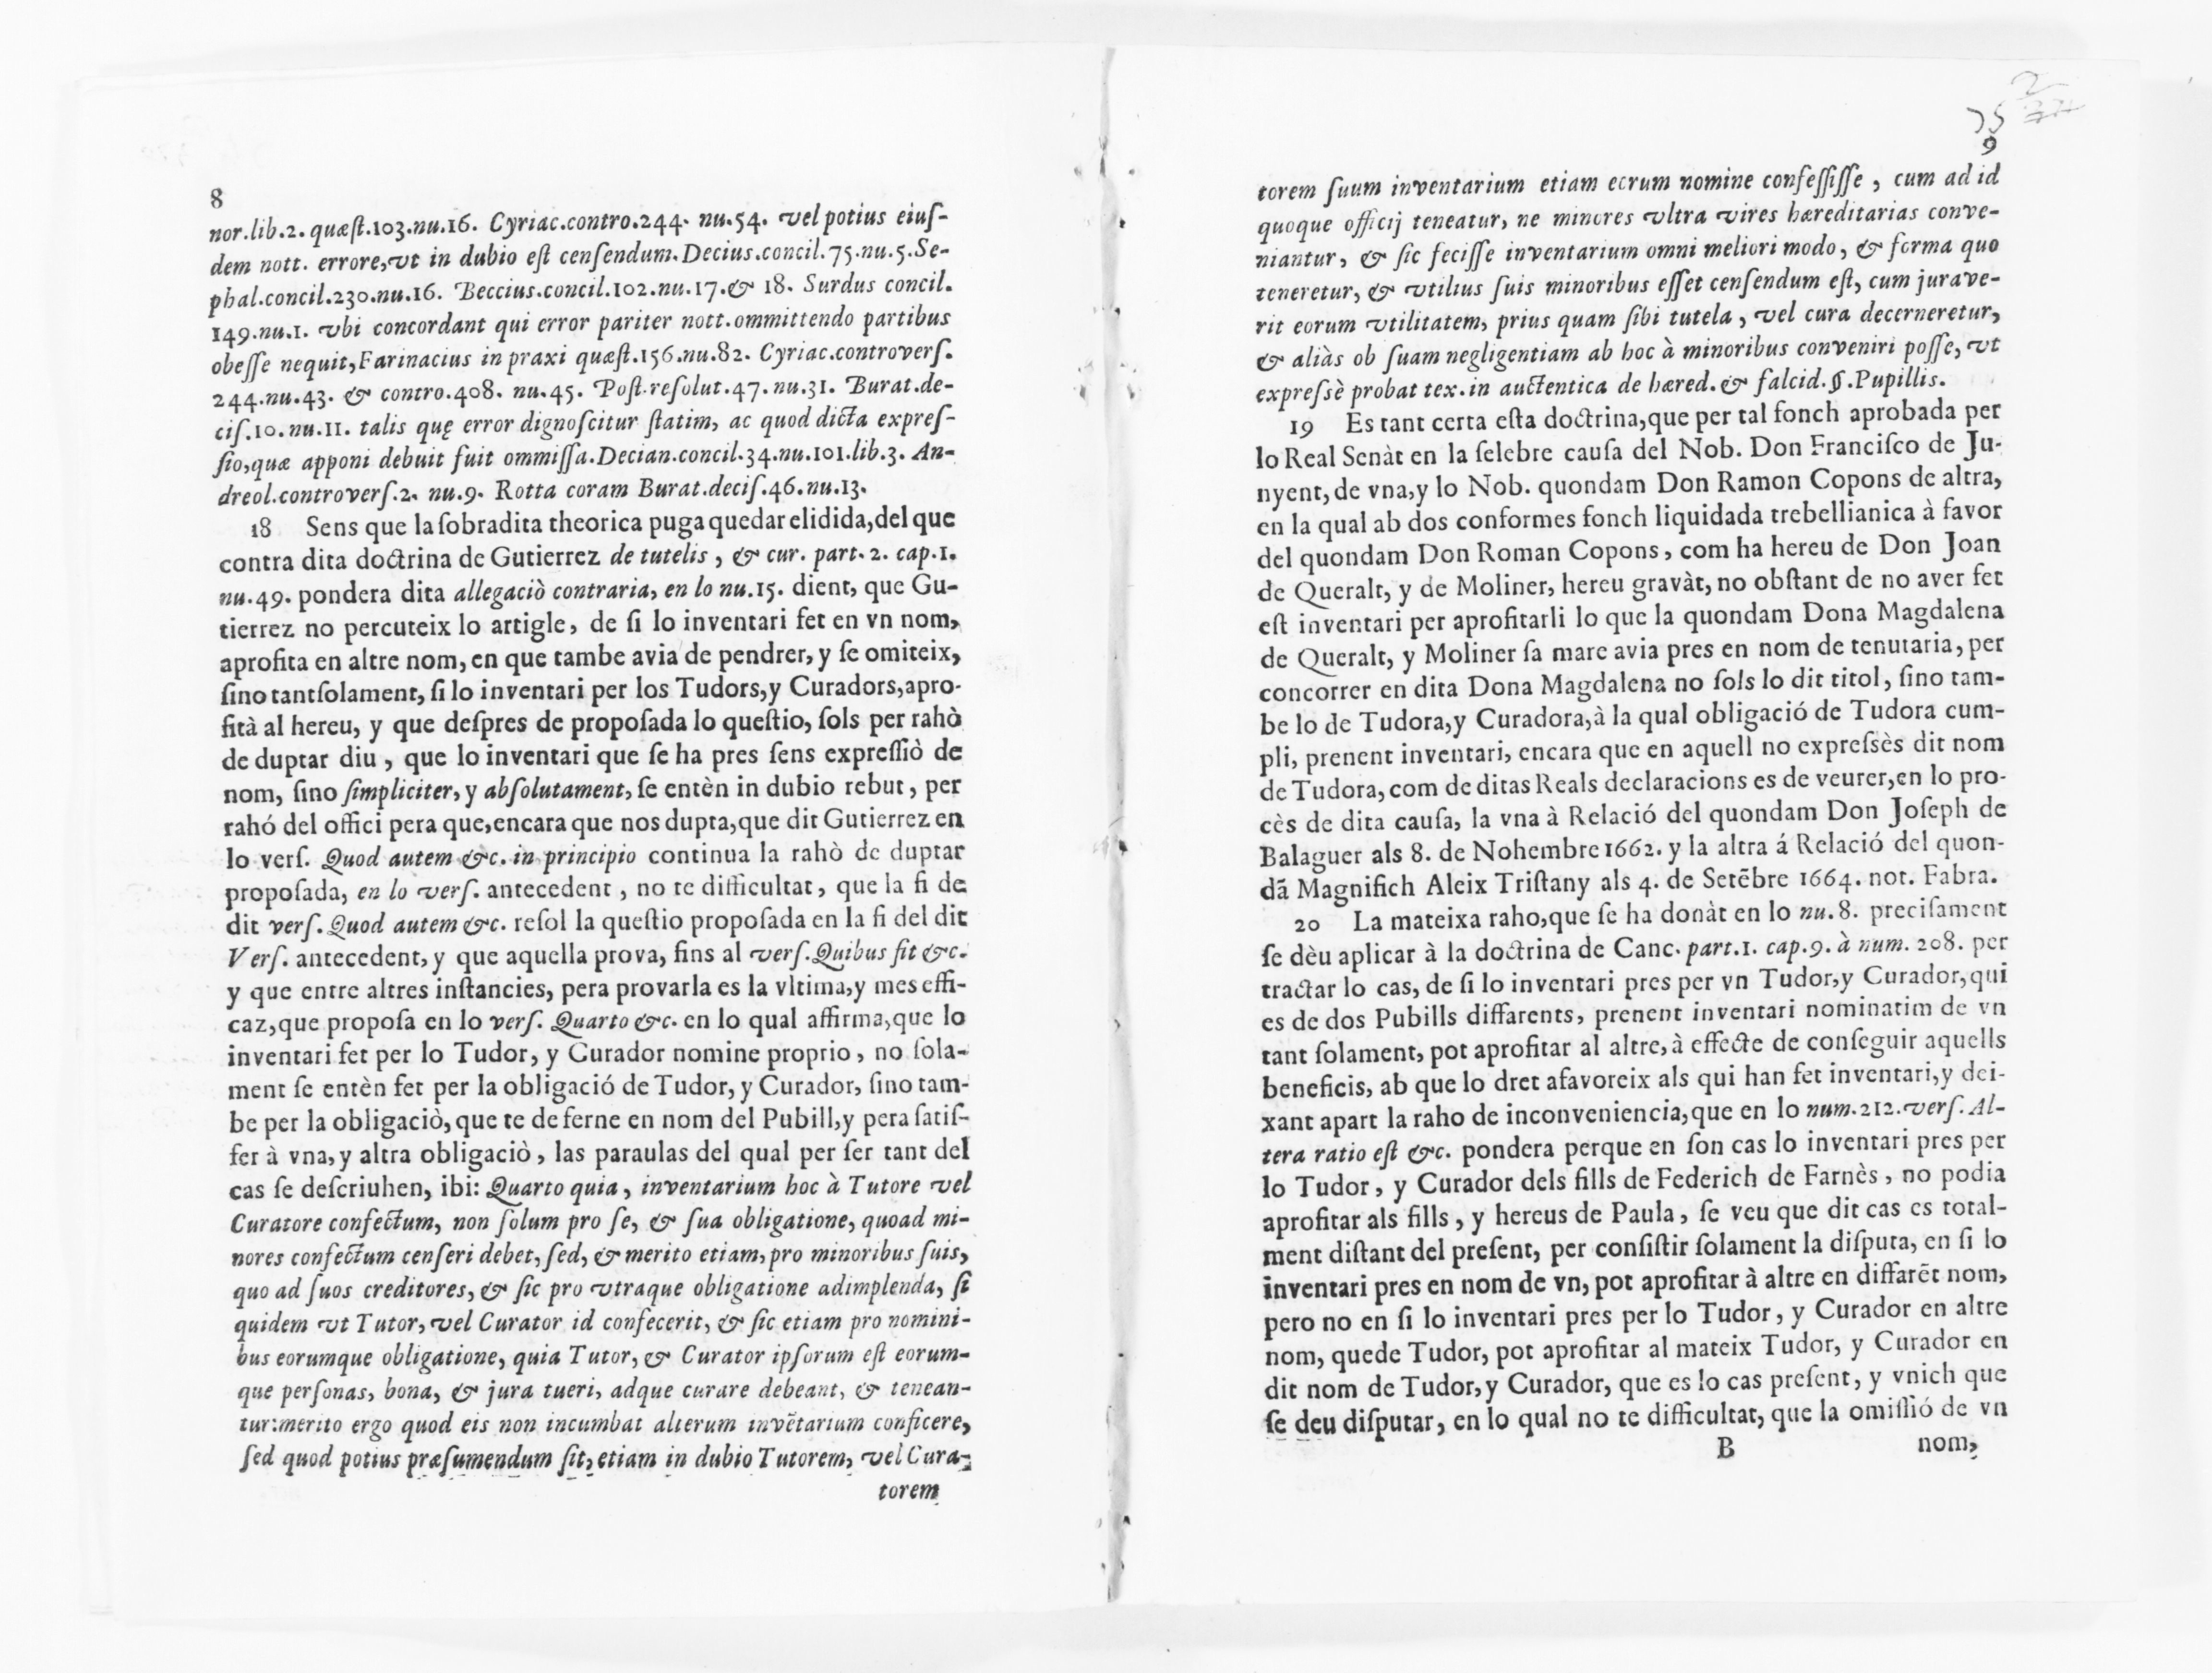 8
nor.lib.2. quæſt.103.nu.16. Cyriac.contro.244. nu.54. vel potius eiuſ-
dem nott. errore,vt in dubio eſt cenſendum.Decius.concil.75.nu.5.Se-
phal.concil.230.nu.16. Beccius.concil.102.nu.17.& 18. Surdus concil.
149.nu.1. vbi concordant qui error pariter nott.ommittendo partibus
obeſſe nequit,Farinacius in praxi quæſt.156.nu.82. Cyriac.controverſ.
244.nu.43. & contro.408. nu.45. Poſt.reſolut.47.nu.31. Burat.de-
ciſ.10.nu.11. talis quę error dignoſcitur ſtatim, ac quod dicta expreſ-
ſio,quæ apponi debuit fuit ommiſſa.Decian.concil.34.nu.101.lib.3. An-
dreol.controverſ.2. nu.9. Rotta coram Burat.deciſ.46.nu.13.
18 Sens que la ſobradita theorica puga quedar elidida,del que
contra dita doctrina de Gutierrez de tutelis , & cur. part. 2. cap.1.
nu.49. pondera dita allegaciò contraria, en lo nu.15. dient, que Gu-
tierrez no percuteix lo artigle, de ſi lo inventari fet en vn nom,
aprofita en altre nom, en que tambe avia de pendrer, y ſe omiteix,
ſino tantſolament, ſi lo inventari per los Tudors,y Curadors,apro-
fità al hereu, y que deſpres de propoſada lo queſtio, ſols per rahò
de duptar diu , que lo inventari que ſe ha pres ſens expreſſiò de
nom, ſino ſimpliciter, y abſolutament, ſe entèn in dubio rebut , per
rahó del offici pera que,encara que nos dupta,que dit Gutierrez en
lo verſ. Quod autem &c. in principio continua la rahò de duptar
propoſada, en lo verſ. antecedent , no te difficultat, que la fi de
dit verſ. Quod autem &c. reſol la queſtio propoſada en la fi del dit
Verſ. antecedent, y que aquella prova, fins al verſ. Quibus fit &c.
y que entre altres inſtancies, pera provarla es la vltima,y mes effi-
caz,que propoſa en lo verſ. Quarto &c. en lo qual affirma,que lo
inventari fet per lo Tudor, y Curador nomine proprio , no ſola-
ment ſe entèn fet per la obligació de Tudor, y Curador, ſino tam-
be per la obligaciò,que te de ferne en nom del Pubill,y pera ſatiſ-
fer à vna,y altra obligaciò , las paraulas del qual per ſer tant del
cas ſe deſcriuhen, ibi: Quarto quia , inventarium hoc à Tutore vel
Curatore confectum, non ſolum pro ſe, & ſua obligatione, quoad mi-
nores confectum cenſeri debet, ſed, & merito etiam, pro minoribus ſuis,
quo ad ſuos creditores, & ſic pro vtraque obligatione adimplenda, ſi
quidem vt Tutor, vel Curator id confecerit, & ſic etiam pro nomini-
bus eorumque obligatione, quia Tutor, & Curator ipſorum eſt eorum-
que perſonas, bona, & jura tueri, adque curare debeant, & tenean-
tur:merito ergo quod eis non incumbat alterum invẽtarium conficere,
ſed quod potius præſumendum ſit, etiam in dubio Tutorem, vel Cura-
torem
75
9
torem ſuum inventarium etiam eorum nomine confeſſiſſe , cum ad id
quoque officij teneatur, ne minores vltra vires hæreditarias conve-
niantur, & ſic feciſſe inventarium omni meliori modo, & forma quo
teneretur, & vtilius ſuis minoribus eſſet cenſendum eſt, cum jurave-
rit eorum vtilitatem, prius quam ſibi tutela , vel cura decerneretur,
& aliàs ob ſuam negligentiam ab hoc à minoribus conveniri poſſe, vt
expreſsè probat tex. in auctentica de hæred. & falcid. §. Pupillis.
19 Es tant certa eſta doctrina,que per tal fonch aprobada per
lo Real Senàt en la ſelebre cauſa del Nob. Don Franciſco de Ju-
nyent, de vna,y lo Nob. quondam Don Ramon Copons de altra,
en la qual ab dos conformes fonch liquidada trebellianica à favor
del quondam Don Roman Copons , com ha hereu de Don Joan
de Queralt, y de Moliner, hereu gravàt, no obſtant de no aver fet
eſt inventari per aprofitarli lo que la quondam Dona Magdalena
de Queralt, y Moliner ſa mare avia pres en nom de tenutaria, per
concorrer en dita Dona Magdalena no ſols lo dit titol , ſino tam-
be lo de Tudora,y Curadora,à la qual obligació de Tudora cum-
pli, prenent inventari, encara que en aquell no expreſsès dit nom
de Tudora, com de ditas Reals declaracions es de veurer,en lo pro-
cès de dita cauſa, la vna à Relació del quondam Don Joſeph de
Balaguer als 8. de Nohembre 1662. y la altra á Relació del quon-
dã Magnifich Aleix Triſtany als 4. de Setẽbre 1664. not. Fabra.
20 La mateixa raho,que ſe ha donàt en lo nu.8. preciſament
ſe dèu aplicar à la doctrina de Canc. part.1. cap.9. à num. 208. per
tractar lo cas, de ſi lo inventari pres per vn Tudor,y Curador,qui
es de dos Pubills diffarents, prenent inventari nominatim de vn
tant ſolament, pot aprofitar al altre, à effecte de conſeguir aquells
beneficis, ab que lo dret afavoreix als qui han fet inventari,y dei-
xant apart la raho de inconveniencia,que en lo num.212.verſ. Al-
tera ratio eſt &c. pondera perque en ſon cas lo inventari pres per
lo Tudor , y Curador dels fills de Federich de Farnès , no podia
aprofitar als fills , y hereus de Paula , ſe veu que dit cas es total-
ment diſtant del preſent, per conſiſtir ſolament la diſputa, en ſi lo
inventari pres en nom de vn, pot aprofitar à altre en diffarẽt nom,
pero no en ſi lo inventari pres per lo Tudor , y Curador en altre
nom, quede Tudor, pot aprofitar al mateix Tudor, y Curador en
dit nom de Tudor, y Curador, que es lo cas preſent, y vnich que
ſe deu diſputar, en lo qual no te difficultat, que la omiſſió de vn
B nom,